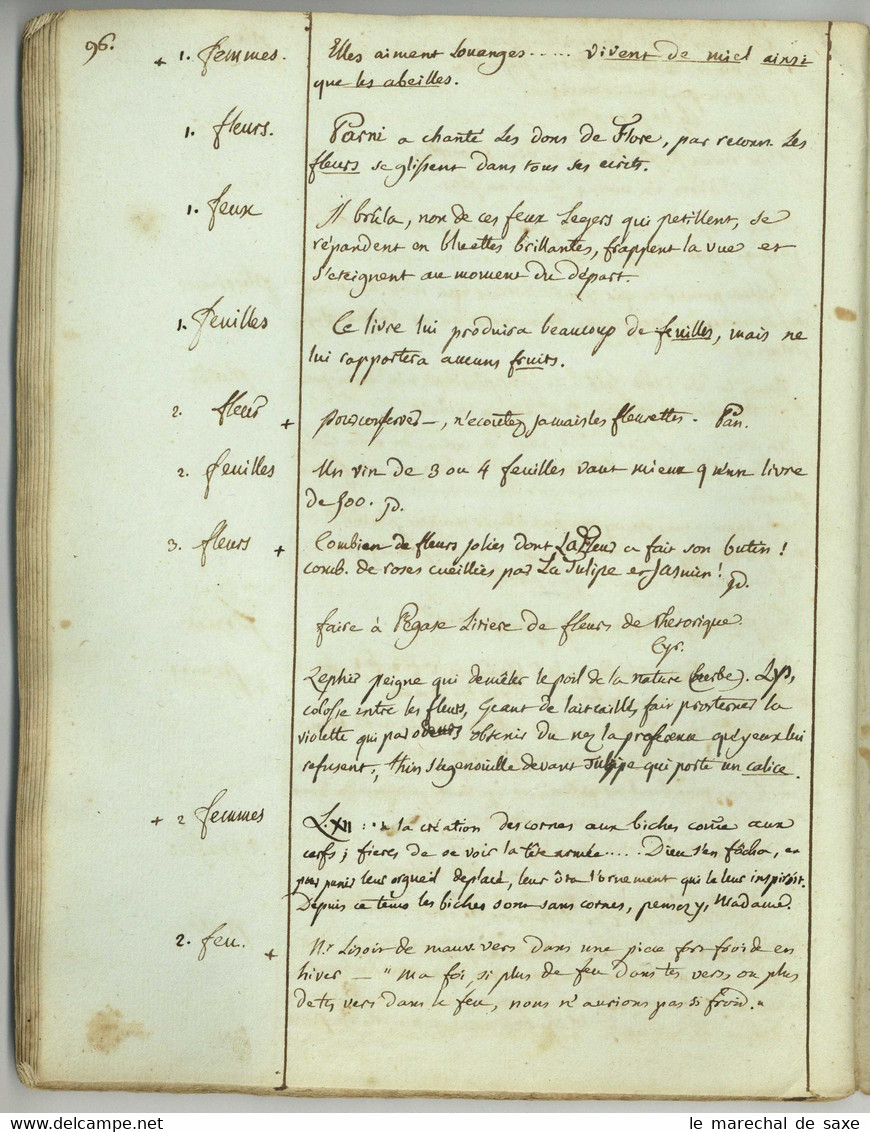 96.
+ 1. femmes. Elles aiment Louanges..... vivent de miel ainsi
que les abeilles.
1. fleurs. Parni a chanté Les dons de Flore, par reconn. Les
fleurs se glissent dans tous ses ecrits.
1. feux Il brûla, non de ces feux Legers qui petillent, se
répandent en bluettes brillantes, frappent la vue et
s'eteignent au moment du départ.
1. feuilles Ce livre lui produira beaucoup de feuilles, mais ne
lui rapportera aucuns fruits.
2. fleur + pour conserver —, n'ecoutez jamais les fleurettes. Pan.
2. feuilles Un vin de 3 ou 4 feuilles vaut mieux qu'un livre
de 500. jd.
3. fleurs + Combien de fleurs jolies dont La fleur a fait son butin!
comb. de roses cueillies par La Tulipe et Jasmin! jd.
faire à Pégase Litiere de fleurs de Rhetorique.
Cyr.
Zephir peigne qui demêler le poil de la nature (herbe). Lys,
colosse entre les fleurs, Geant de lait caillé, fair prosterner la
violette qui par odeurs obtenir du nez la que yeux lui
refusent, s'agenouille devant Tulipe qui porte un calice.
+ 2 femmes L. XII : à la création des cornes aux biches come aux
cerfs; fieres de se voir la tête armée..... Dieu s'en fâcha, et
pour punir leur orgueil deplacé, leur ôta l'ornement qui le leur inspiroit.
Depuis ce tems les biches sont sans cornes, pensez y, Madame.
2. feu. + Nr Lisoit de mauv. vers dans une piece fort froide en
hiver — " Ma foi, si plus de feu dans tes vers ou plus
de tes vers dans le feu, nous n'aurions pas si froid. "
le marechal de saxe